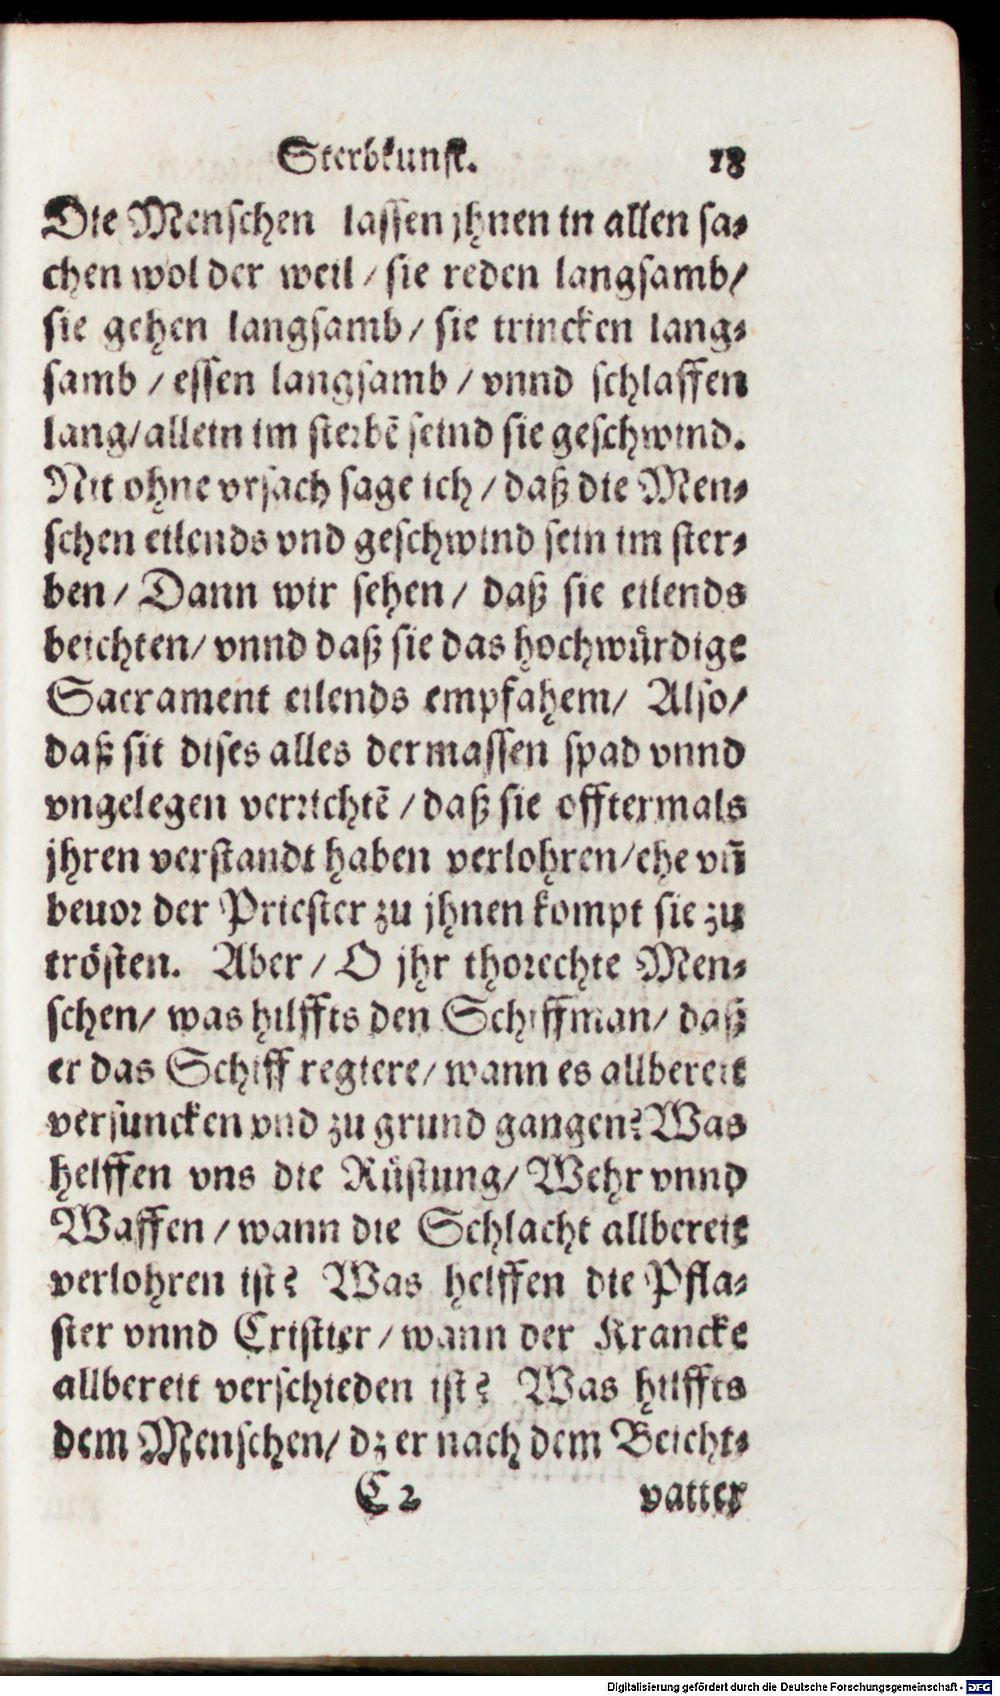 Sterbkunst. 18
Die Menschen lassen jhnen in allen sa⸗
chen wol der weil / sie reden langsamb/
sie gehen langsamb / sie trincken lang⸗
samb / essen langsamb / vnnd schlaffen
lang/allein im sterbē seind sie geschwind.
Nit ohne vrsach sage ich / daß die Men⸗
schen eilends vnd geschwind sein im ster⸗
ben / Dann wir sehen / daß sie eilends
beichten/ vnnd daß sie das hochwürdige
Sacrament eilends empfahem/ Also/
daß sit dises alles dermassen spad vnnd
vngelegen verrichtē / daß sie offtermals
jhren verstandt haben verlohren/ehe vñ
beuor der Priester zu jhnen kompt sie zu
trösten. Aber / O jhr thorechte Men⸗
schen/ was hilffts den Schiffman/ daß
er das Schiff regiere/ wann es allbereit
versuncken vnd zu grund gangen? Was
helffen vns die Rüstung/ Wehr vnnd
Waffen / wann die Schlacht allbereit
verlohren ist? Was helffen die Pfla⸗
ster vnnd Cristier / wann der Krancke
allbereit verschieden ist? Was hilffts
dem Menschen/ dz er nach dem Beicht⸗
C 2 vatter
Digitalisierung gefördert durch die Deutsche Forschungsgemeinschaft - DFG